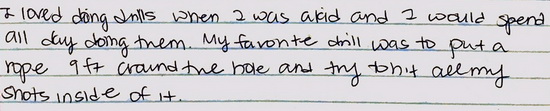 I loved doing drills when I was a kid and I would spend
all day doing them. My favorite drill was to put a
rope 9 ft around the hole and try to hit all my
shots inside of it.